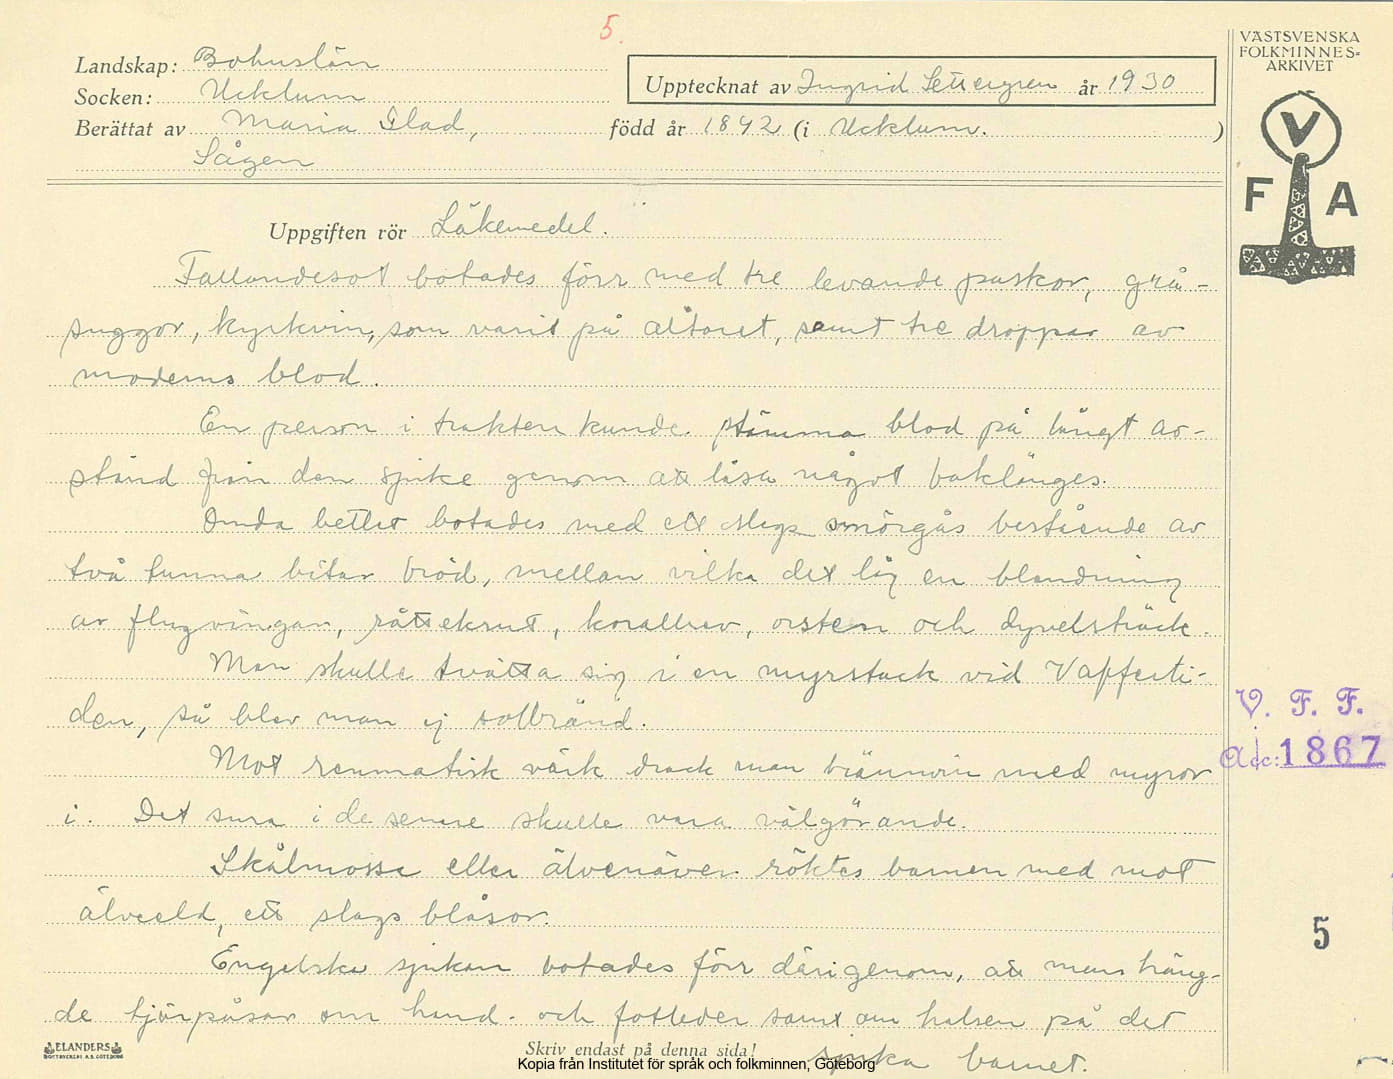 5.
VÄSTSVENSKA
FOLKMINNES=
ARKIVET
Landskap: Bohuslän
Socken: Ucklum
Upptecknat av Ingrid Settergren år 1930
Berättat av Maria Glad, född år 1842 (i Ucklum. )
Sågen
V
F A
Uppgiften rör Läkemedel.
Fallandesot botades förr med tre levande paskor, grå-
suggor, kyrkvin, som varit på altaret, samt tre droppar av
moderns blod.
En person i trakten kunde stämma blod på långt av-
stånd från den sjuke genom att läsa något baklänges.
Onda better botades med ett slags smörgås bestående av
två tunna bitar bröd, mellan vilka det låg en blandning
av flugvingar, råttekrut, korallrev, orsten och dyvelsträck.
Man skulle tvätta sig i en myrstack vid Vaffeti-
den, så blev man ej solbränd.
Mot reumatisk värk drack man brännvin med myror
i. Det sura i de senare skulle vara välgörande.
Skålmossa eller älvenäver röktes barnen med mot
älveeld, ett slags blåsor.
Engelska sjukan botades förr därigenom, att man häng-
de tjärpåsar om hand- och fotleder samt om halsen på det
sjuka barnet.
V. F. F.
Acc: 1867
5
ELANDERS
BOKTRYCKERI A.B. GÖTEBORG
Skriv endast på denna sida!
Kopia från Institutet för språk och folkminnen, Göteborg